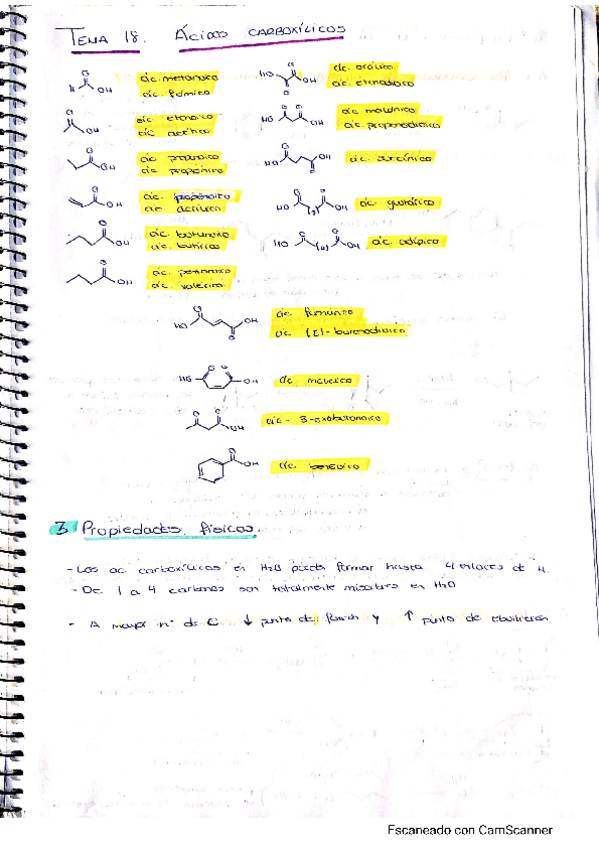 TEMA 18. ÁCIDOS CARBOXÍLICOS
H OH
O
ác. metanoico
ác. fórmico
O
HO OH
O
ác. oxálico
ác. etanodioico
O
OH
ác. etanoico
ác. acético
O O
HO OH
ác. malónico
ác. propanodioico
O
OH
ác. propanoico
ác. propiónico
O
HO OH
O
ác. succínico
O
OH
ác. propenoico
ác. acrílico
O O
HO OH
ác. glutárico
O
OH
ác. butanoico
ác. butírico
O O
HO (4) OH
ác. adípico
O
OH
ác. pentanoico
ác. valérico
O
HO OH
O
ác. fumárico
ác. (E)-butenodioico
O O
HO OH
ác. maleico
O O
OH
ác. 3-oxobutanoico
O
OH
ác. benzoico
3 Propiedades físicas.
- Los ac. carboxílicos en H2O puede formar hasta 4 enlaces de H.
- De 1 a 4 carbonos son totalmente miscibles en H2O
- A mayor nº de C ↓ punto de fusión y ↑ punto de ebullición
Escaneado con CamScanner